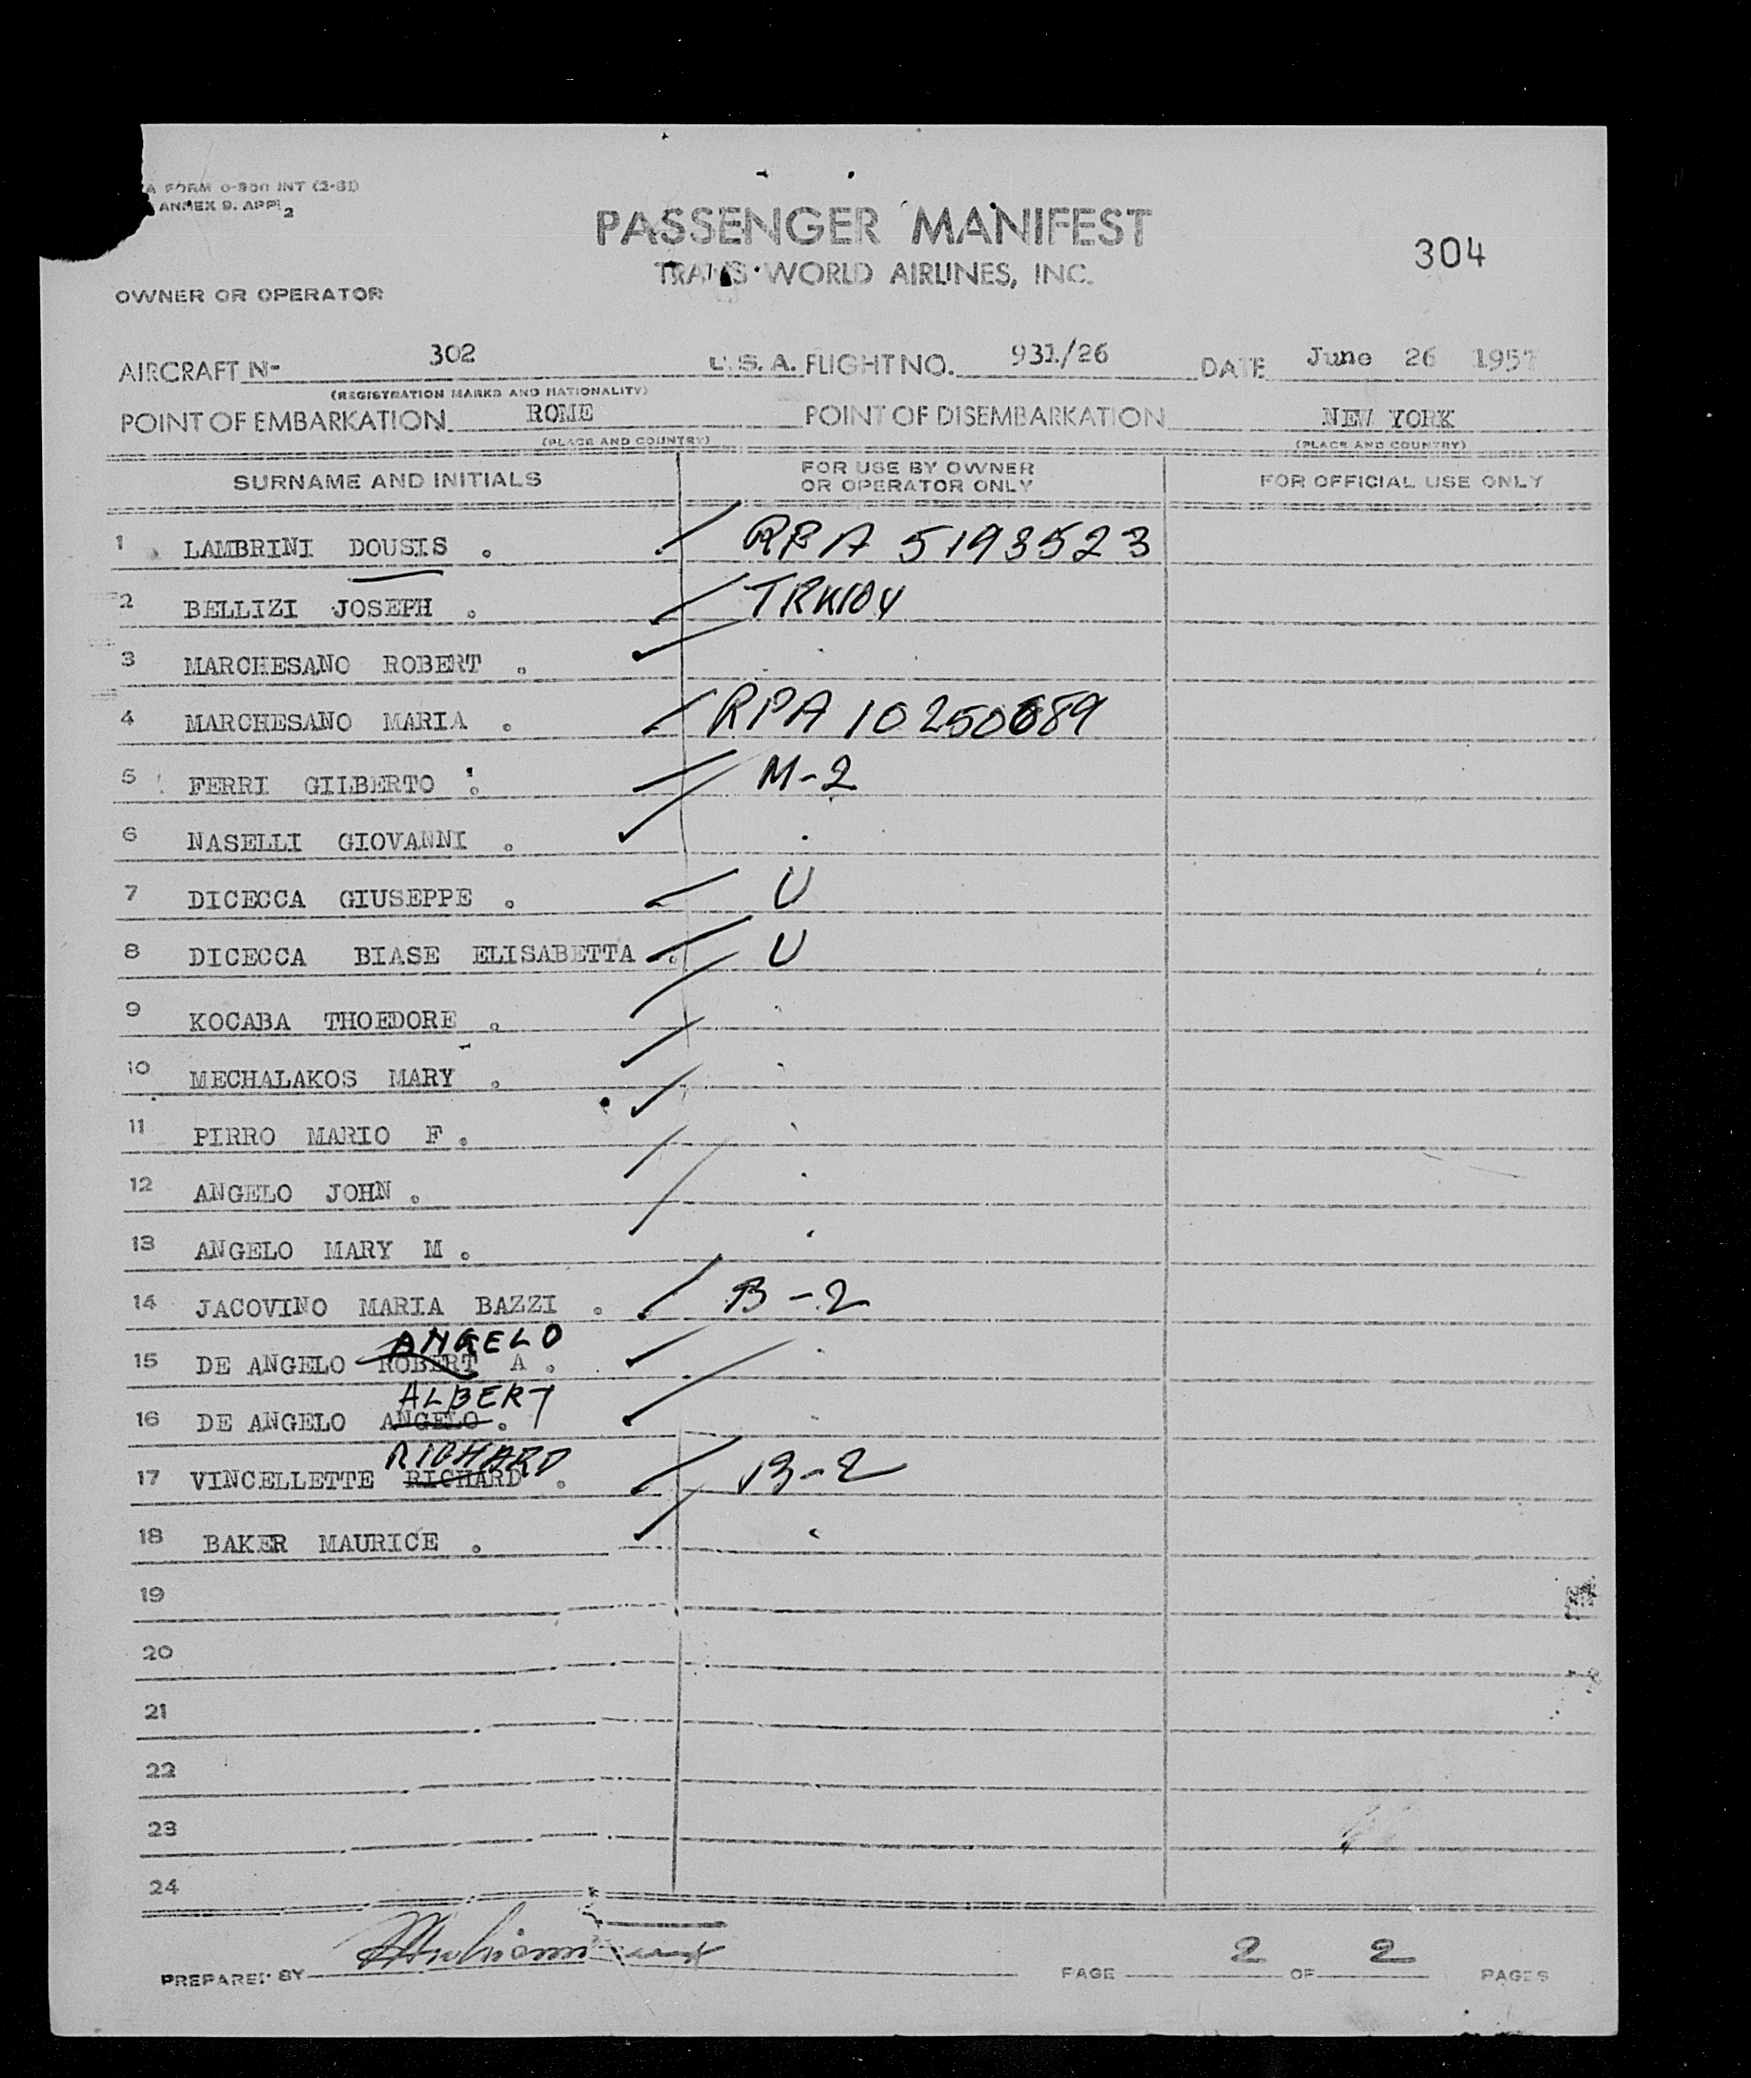 A FORM O-800 INT (2-51)
ANNEX 9. APP. 2
PASSENGER MANIFEST
304
TRANS WORLD AIRLINES, INC.
OWNER OR OPERATOR
AIRCRAFT N- 302 U.S.A. FLIGHT NO. 931/26 DATE June 26 1957
(REGISTRATION MARKS AND NATIONALITY)
POINT OF EMBARKATION ROME POINT OF DISEMBARKATION NEW YORK
(PLACE AND COUNTRY) (PLACE AND COUNTRY)
SURNAME AND INITIALS FOR USE BY OWNER OR OPERATOR ONLY FOR OFFICIAL USE ONLY
1 LAMBRINI DOUSIS . RPA 5193523
2 BELLIZI JOSEPH .
3 MARCHESANO ROBERT .
4 MARCHESANO MARIA . RPA 10250689
5 FERRI GILBERTO . M-2
6 NASELLI GIOVANNI .
7 DICECCA GIUSEPPE . U
8 DICECCA BIASE ELISABETTA . U
9 KOCABA THOEDORE .
10 MECHALAKOS MARY .
11 PIRRO MARIO F .
12 ANGELO JOHN .
13 ANGELO MARY M .
14 JACOVINO MARIA BAZZI . B-2
ANGELO
15 DE ANGELO ROBERT A .
ALBERT
16 DE ANGELO ANGELO .
RICHARD
17 VINCELLETTE RICHARD . B-2
18 BAKER MAURICE .
19
20
21
22
23
24
PREPARED BY PAGE 2 OF 2 PAGES